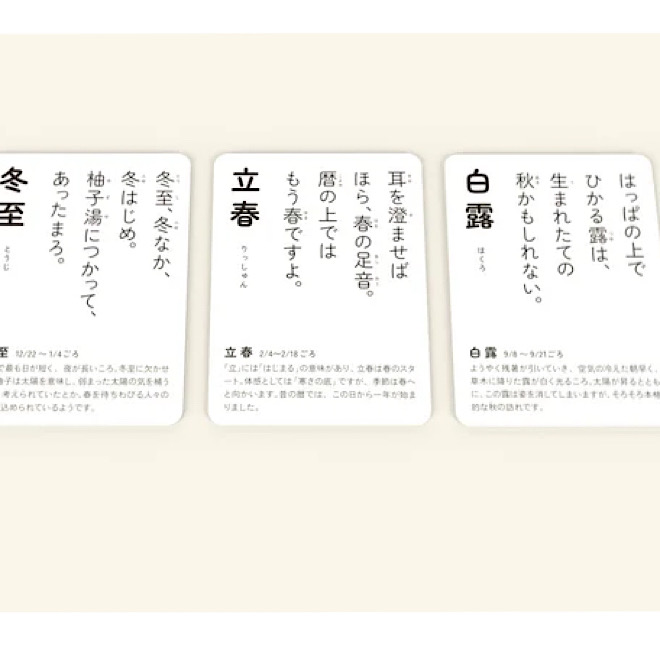 冬至
とうじ
冬至、冬なか、
冬はじめ。
柚子湯につかって、
あったまろ。
至 12/22〜1/4ごろ
で最も日が短く、夜が長いころ。冬至に欠かせ
柚子は太陽を意味し、弱まった太陽の気を補う
考えられていたとか。春を待ちわびる人々の
込められているようです。
立春
りっしゅん
耳を澄ませば
ほら、春の足音。
暦の上では
もう春ですよ。
立春 2/4〜2/18ごろ
「立」には「はじまる」の意味があり、立春は春のスタ
ート。体感としては「寒さの底」ですが、季節は春へ
と向かいます。昔の暦では、この日から一年が始ま
りました。
白露
はくろ
はっぱの上で
ひかる露は、
生まれたての
秋かもしれない。
白露 9/8〜9/21ごろ
ようやく残暑が引いていき、空気の冷えた朝早く、
草木に降りた露が白く光るころ。太陽が昇るととも
に、この露は姿を消してしまいますが、そろそろ本格
的な秋の訪れです。